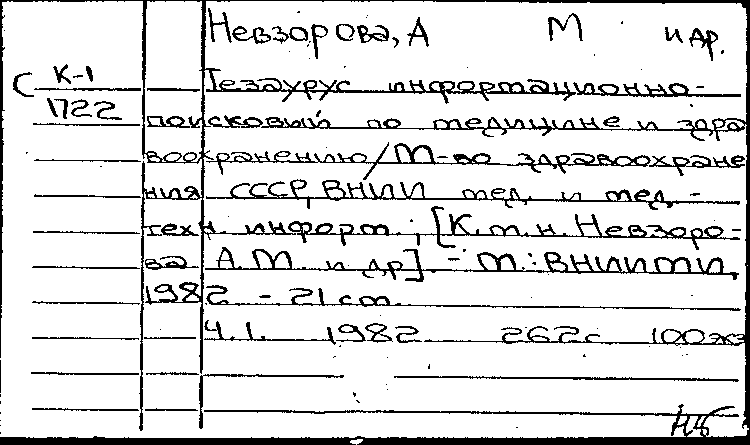 Невзорова, А М и др.
С К-1
1722
Тезаурус информационно-
поисковый по медицине и здра
воохранению/М-во здравоохране
ния СССР, ВНИИ мед. и мед.-
техн. информ.; [К.т.н. Невзоро-
ва А.М. и др]. - М.: ВНИИМИ,
1982 - 21 см.
Ч.1. 1982 262с 100экз